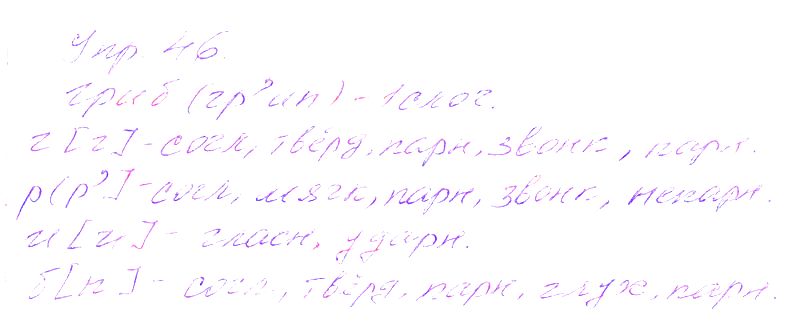 Упр. 46.
гриб (гр'ип) - 1 слог.
г [г] - согл, твёрд, парн, звонк, парн.
р [р'] - согл, мягк, парн, звонк, непарн.
и [и] - гласн, ударн.
б [п] - согл, твёрд, парн, глух, парн.